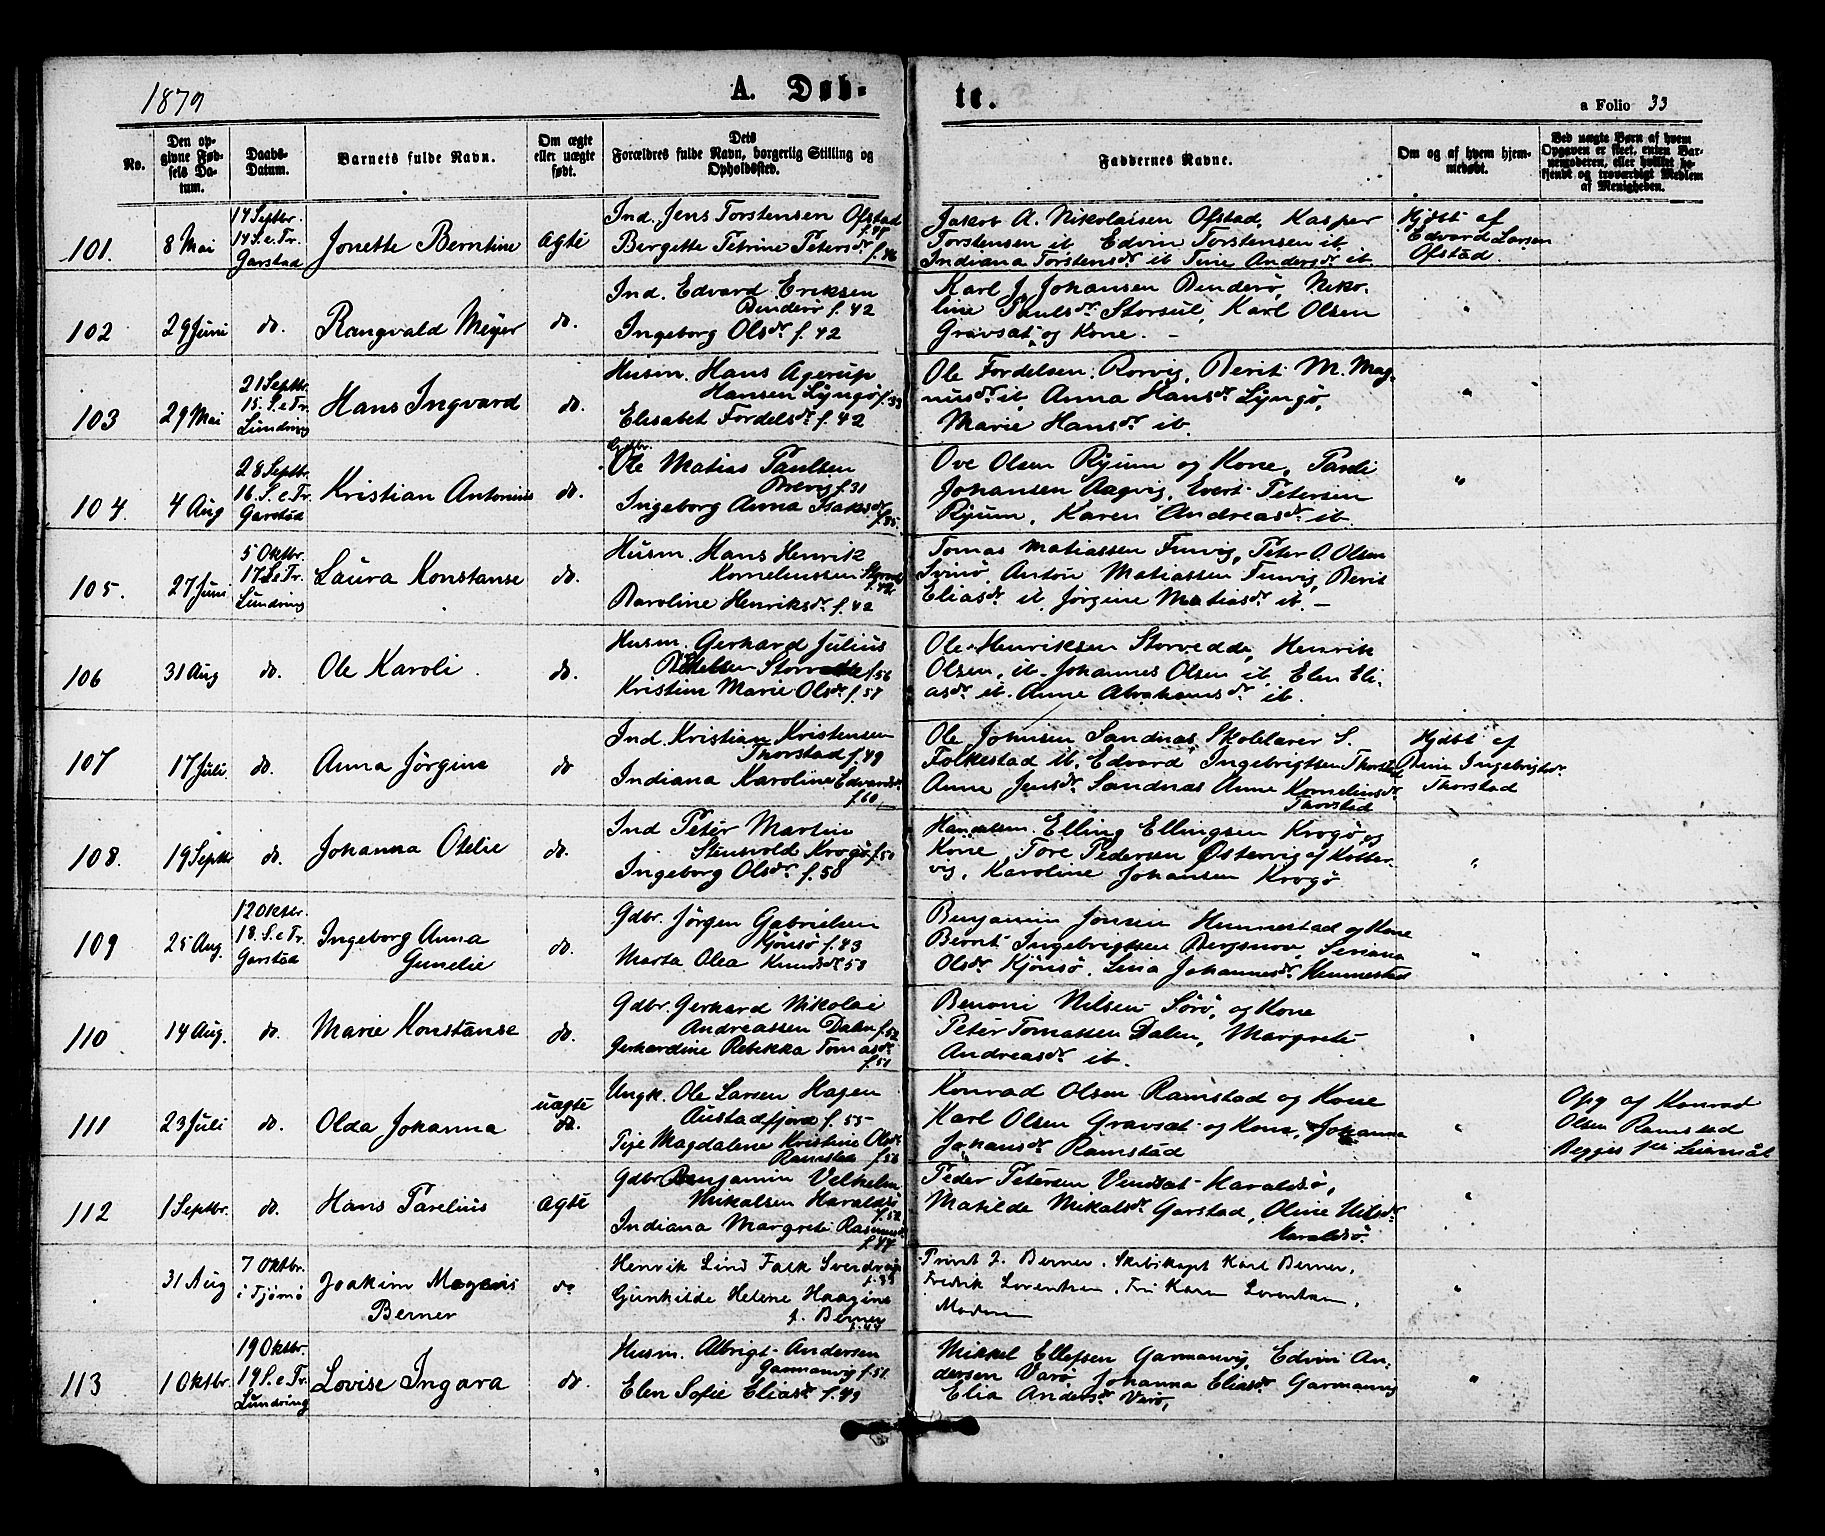 1879
A. Døb-
te.
a Folio 33
No.
Den op-
givne Fød-
sels Da-
tum.
Daabs-
Datum.
Barnets fulde Navn.
Om ægte
eller uægte
født.
Dets
Forældres fulde Navn, borgerlig Stilling og
Opholdssted.
Faddernes Navne.
Om og af hvem hjem-
medøbt.
Ved uægte Børn af hvem
Opgaven er skeet, enten Bar-
nemoderen, eller hvilket be-
kjendt og troværdigt Medlem
af Menigheden.
101.
8 Mai
14 Septbr.
14 S. e. Tr.
Garstad
Jonette Berntine
Ægte
Ind. Jens Torstensen Ofstad
Bergette Petrine Petersdr f. 46
Jakob A. Nikolaisen Ofstad, Kasper
Torstensen ib. Edvin Torstensen ib.
Indiana Torstensdr ib. Tine Andersdr ib.
Hjdbt af
Edvard Larsen
Ofstad.
102
29 Juni
do.
Rangvald Meyer
do.
Ind. Edvard Eriksen
Benderø f. 42
Ingeborg Olsdr f. 42
Karl J. Johansen Benderø, Niko-
line Paulsdr Storsul, Karl Olsen
Gravsat og Kone. -
"
103
29 Mai
21 Septbr.
15. S. e Tr.
Lundring
Hans Ingvard
do.
Husm. Hans Agerup
Hansen Lyngø f. 33
Elisabet Fordelsdr f. 42
Ole Fordelsen Rorvig, Berit M. Mag-
nusdr ib, Anna Hansdr Lyngø,
Marie Hansdr ib.
"
104.
4 Aug
28 Septbr.
16. S. e Tr.
Garstad
Kristian Antonius
do.
Gdbr.
Ole Matias Paulsen
Brevig f. 31
Ingeborg Anna Isaksdr
f. 35.
Ove Olsen Ryum og Kone, Paul
Johansen Aagvig, Evert Petersen
Ryum, Karen Andreasdr ib.
"
105.
27 Juni
5 Oktbr.
17 S. e Tr.
Lundring
Laura Konstanse
do.
Husm. Hans Henrik
Korneliussen
f. 42
Baroline Henriksdr f. 42
Tomas Matiassen Finvig, Peter O. Olsen
Svinø, Anton Matiassen Finvig, Berit
Eliasdr ib. Jørgine Matiasdr ib. -
106
31 Aug
do.
Ole Karoli
do.
Husm. Gerhard Julius
f. 56
Kristine Marie Olsdr f. 57
Ole Henriksen Storvedde, Henrik
Olsen, ib. Johannes Olsen ib, Elen Eli-
asdr ib. Anne Abrahamsdr ib.
107
17 Juli
do.
Anna Jørgine
do
Ind. Kristian Kristensen
Thorstad f. 49
Indiana Karoline Edvardsdr
f. 60
Ole Johnsen Sandnæs, Skolelærer S.
Folkestad ib, Edvard Ingebrigtsen Thorstad
Anne Jensdr Sandnæs Anne Korneliusdr
Thorstad
Hjdbt af
Anne Ingebrigtsdr
Thorstad
108.
19 Septbr
do.
Johanna Otelie
do.
Ind Peter Martin
Stensvold Krogø f. 50
Ingeborg Olsdr f. 50
Handelsm. Elling Ellingsen Krogø og
Kone, Tore Pedersen Østervig af Kolver-
vig, Karoline Johansen Krogø
"
109
25 Aug.
12 Oktbr.
18. S. e Tr.
Garstad
Ingeborg Anna
Gunelie
do.
Gdbr. Jörgen Gabrielsen
Kjønsø f. 43
Marta Olea Knudsdr 58
Benjamin Jonsen Hunnestad og Kone
Bernt Ingebrigtsen Bergsnov, Seriana
Olsdr Kjønsø, Lina Johannesdr Hunnestad
"
110
14 Aug.
do.
Marie Konstanse
do.
Gdbr. Gerhard Nikolai
Andreassen Dalen f. 52
Gerhardine Rebekka Tomasdr
f. 51
Benoni Nilsen Sørø, og Kone
Peter Tomassen Dalen, Margrete
Andreasdr ib.
"
111
23 Juli
do.
Olda Johanna
uægte
do.
Ungk. Ole Larsen Hagen
Austadfjord f. 55
Pige Magdalene Kristine Olsdr
Ramstad f. 56
Konrad Olsen Ramstad og Kone
Karl Olsen Gravsat og Kone, Johanna
Johansdr Ramstad
"
Opg af Konrad
Olsen Ramstad
Begges 1ste Leiermål
112
1 Septbr.
do.
Hans Parelius
Ægte
Gdbr Benjamin Velhelm
Mikalsen Haraldsø
f. 52
Indiana Margrete Rasmusdr
f. 47
Peder Petersen Vendsat Haraldsø,
Matilde Mikalsdr Garstad, Oline Nilsdr
Haraldsø.
"
31 Aug
7 Oktbr.
i Fjørnø
Joakim Magens
Berner
do
Henrik Lind Falk Svendrup
Gunhilde Helene Haagine
f. Berner
f. 44
Privat J. Berner, Skibskapt Karl Berner,
Fredrik Lorentsen, Fru Karen Lorentsen,
Moderen
"
113
1 Oktbr.
19 Oktbr.
19 S. e Tr.
Lundring
Lovise Ingara
do.
Husm. Albrigt Andersen
Garmanvig f. 51
Elen Sofie Eliasdr f. 49
Mikkel Ellefsen Garmanvig, Edvin An-
dersen Varø, Johanna Eliasdr Garmanvig
Elia Andersdr Varø,
"